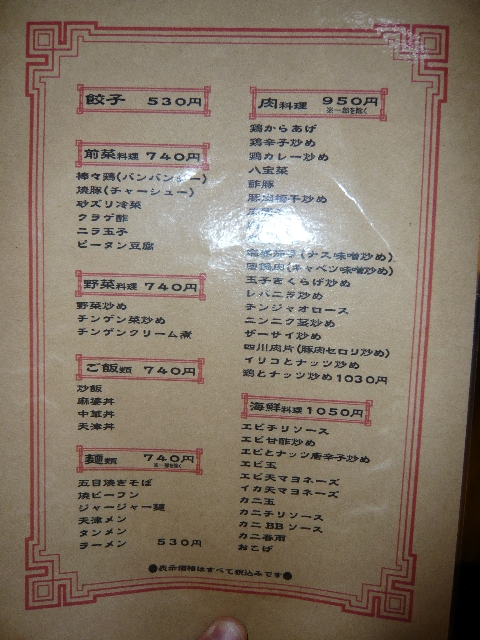 餃子 530円
前菜料理 740円
棒々鶏(バンバンジー)
焼豚(チャーシュー)
砂ズリ冷菜
クラゲ酢
ニラ玉子
ピータン豆腐
野菜料理 740円
野菜炒め
チンゲン菜炒め
チンゲンクリーム煮
ご飯類 740円
炒飯
麻婆丼
中華丼
天津丼
麺類 740円
※一部を除く
五目焼きそば
焼ビーフン
ジャージャー麺
天津メン
タンメン
ラーメン 530円
肉料理 950円
※一部を除く
鶏からあげ
鶏辛子炒め
鶏カレー炒め
八宝菜
酢豚
(ナス味噌炒め)
回鍋肉(キャベツ味噌炒め)
玉子きくらげ炒め
レバニラ炒め
チンジャオロース
ニンニク茎炒め
ザーサイ炒め
四川肉片(豚肉セロリ炒め)
イリコとナッツ炒め
鶏とナッツ炒め 1030円
海鮮料理 1050円
エビチリソース
エビ甘酢炒め
エビとナッツ唐辛子炒め
エビ玉
エビ天マヨネーズ
イカ天マヨネーズ
カニ玉
カニチリソース
カニBBソース
カニ春雨
おこげ
●表示価格はすべて税込みです●